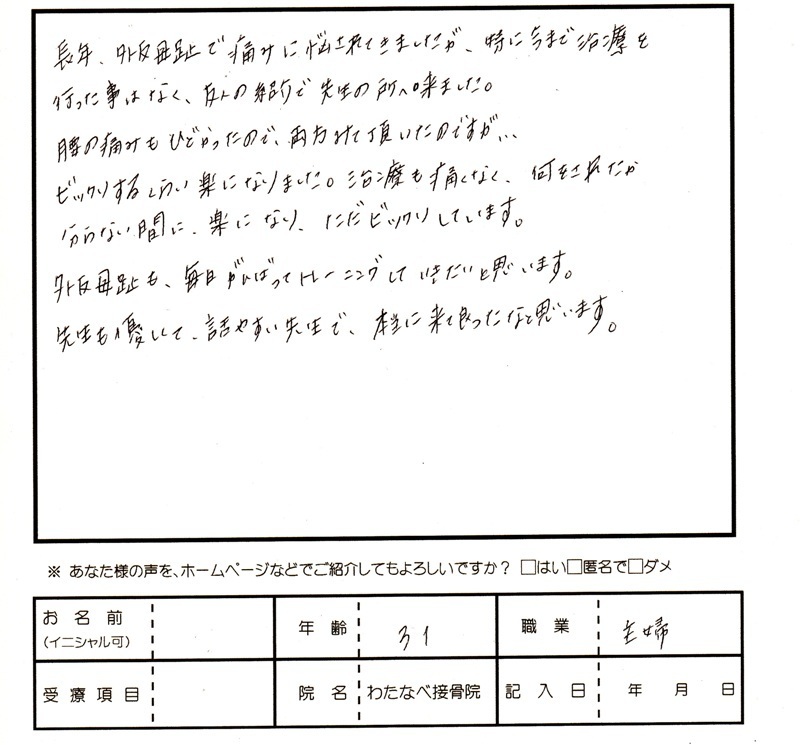 長年、外反母趾で痛みに悩されてきましたが、特に今まで治療を
行った事はなく、友人の紹介で先生の所へ来ました。
腰の痛みもひどかったので、両方みて頂いたのですが...
ビックリするくらい楽になりました。治療も痛くなく、何をされたか
分らない間に、楽になり、ただビックリしています。
外反母趾も、毎日がんばってトレーニングしていきたいと思います。
先生も優しくて、話やすい先生で、本当に来て良ったなと思います。
※ あなた様の声を、ホームページなどでご紹介してもよろしいですか？ □はい□匿名で□ダメ
お名前 (イニシャル可) 年齢 31 職業 主婦
受療項目 院名 わたなべ接骨院 記入日 年 月 日